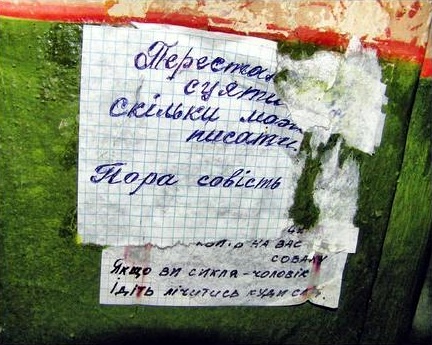 Переста
суяти
скільки мож
писати.
Пора совість
на вас
совали
Якщо ви сикла-чоловік
ідіть лічитись куди сл